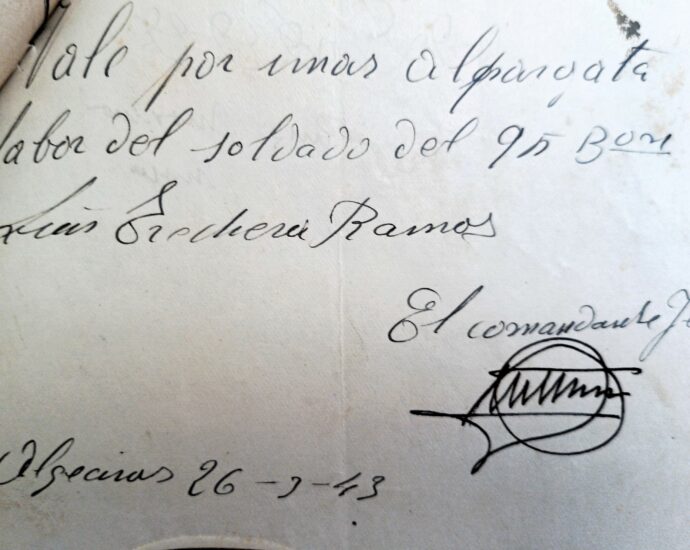 Vale por unas alpargata
labor del soldado del 95 Bon
Luis Erechera Ramos
El comandante
Algeciras 26-3-43